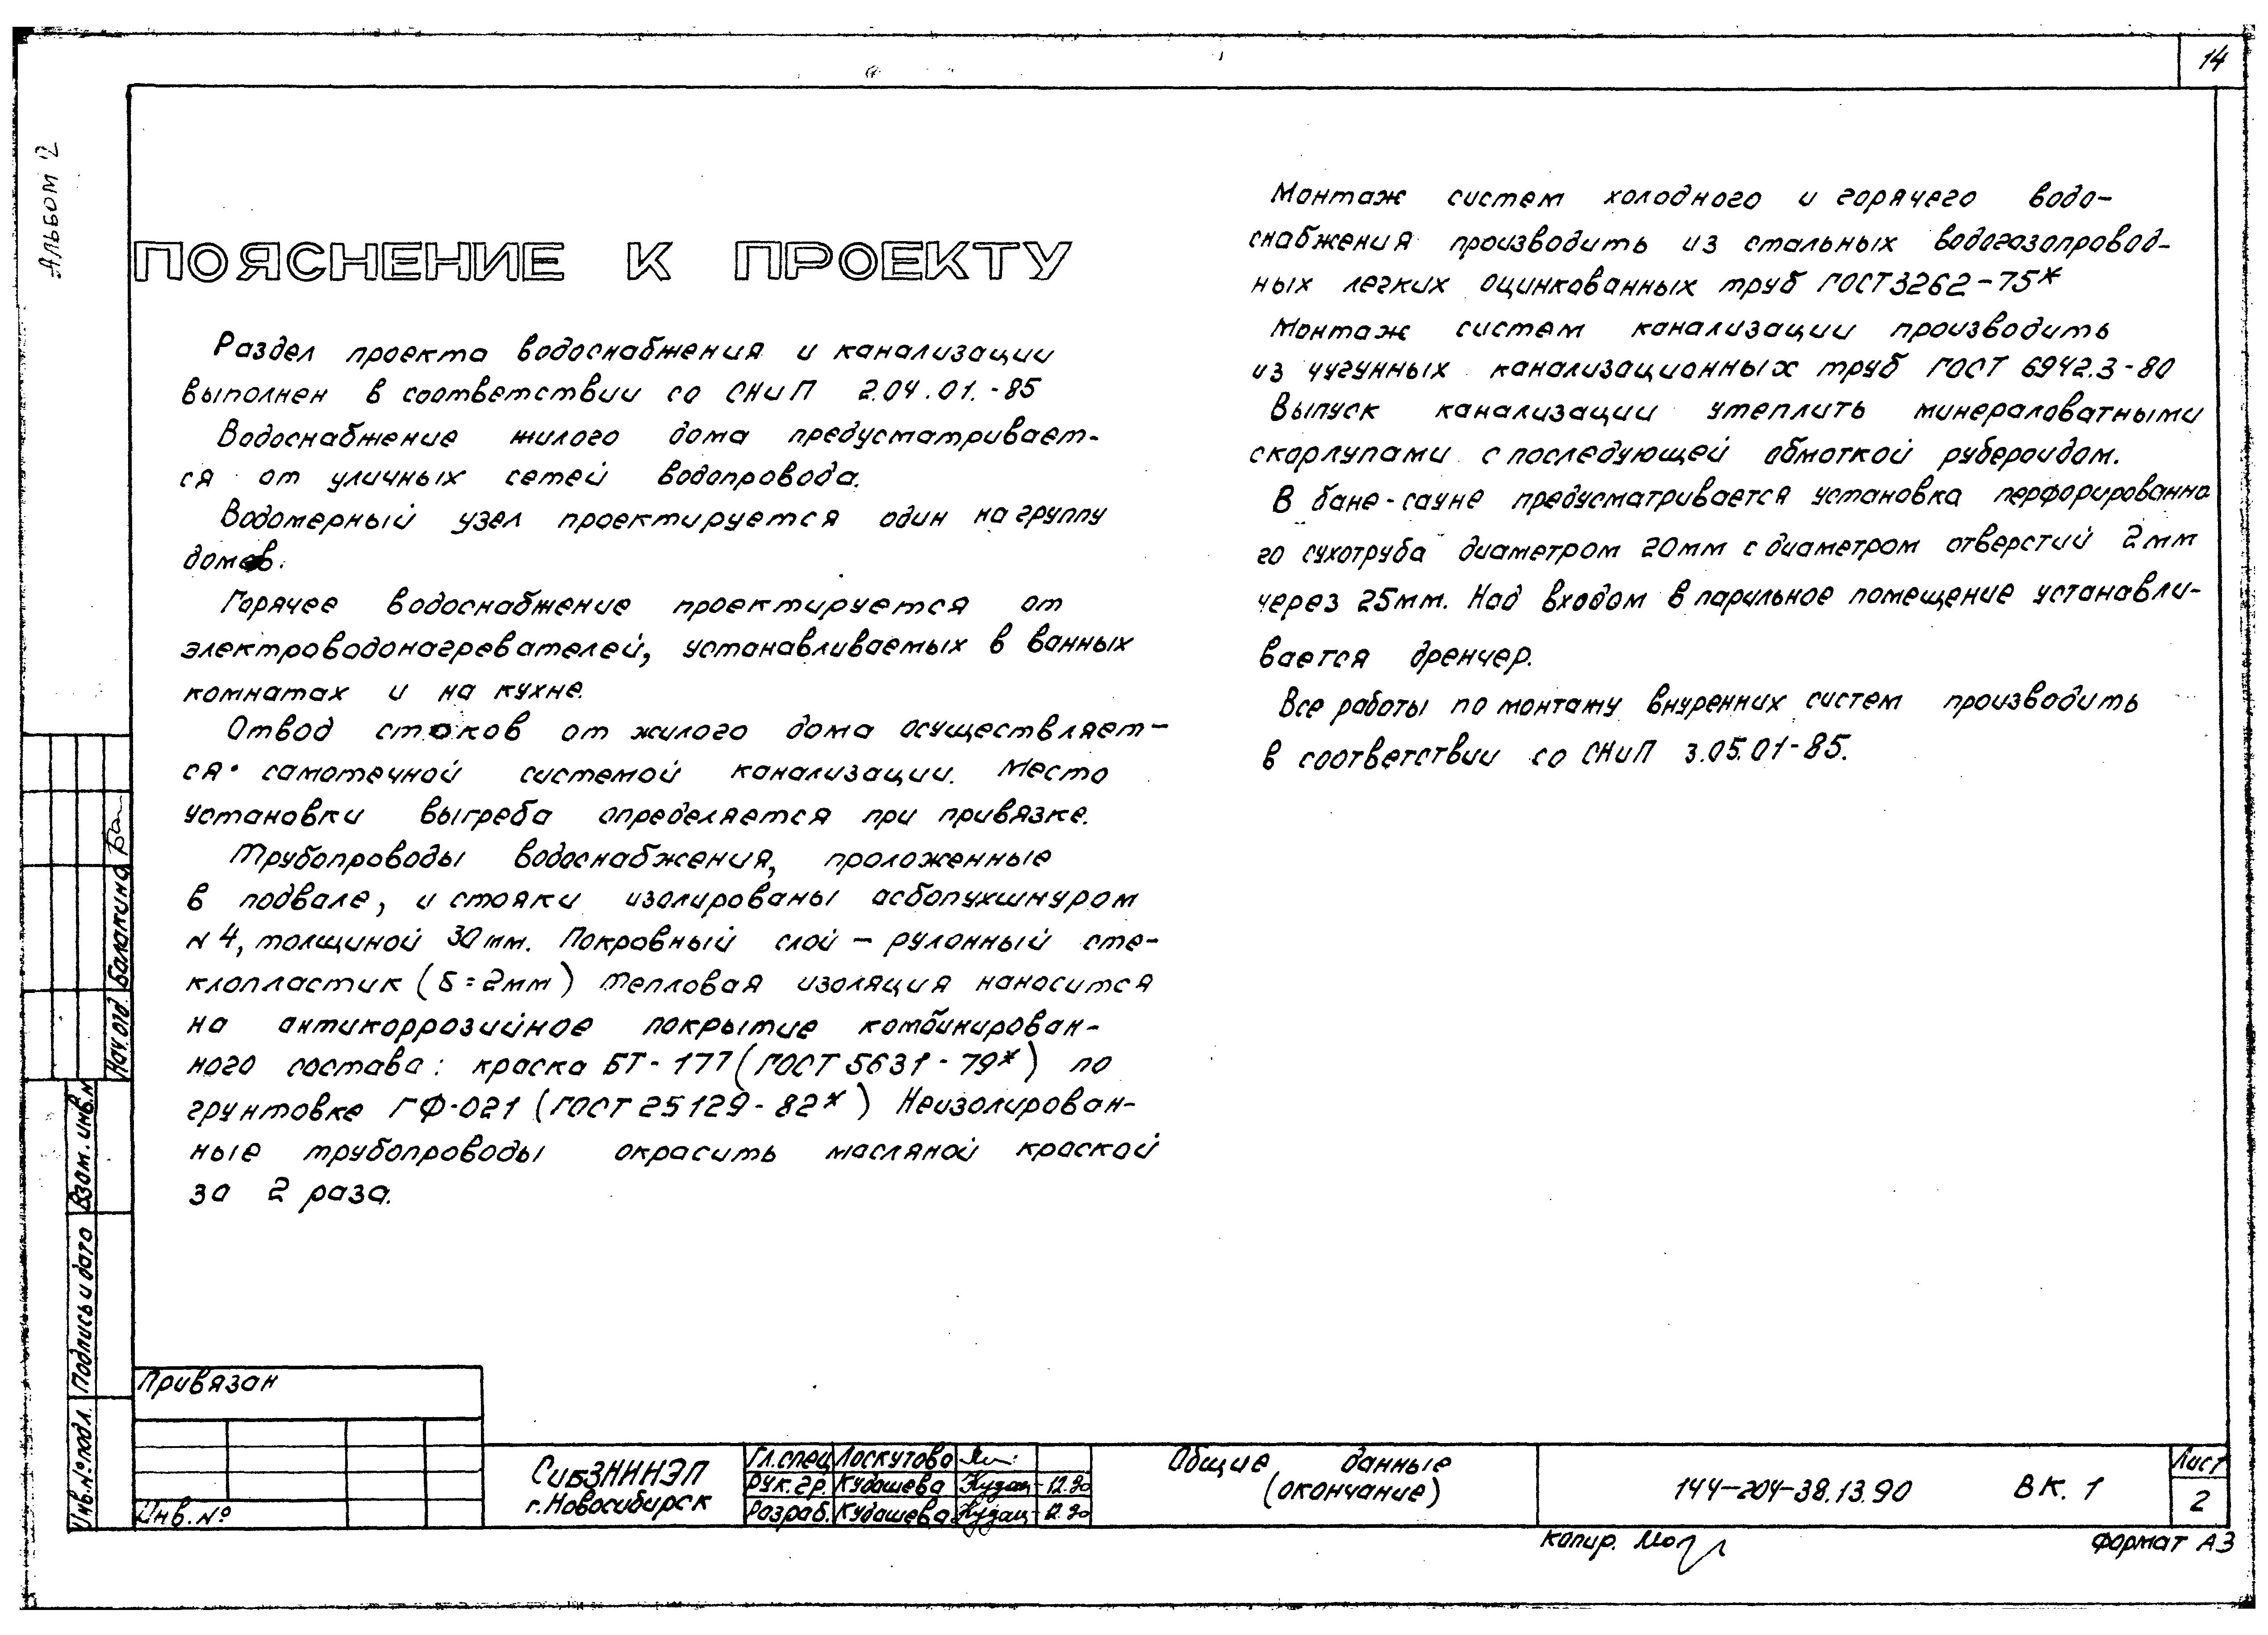 14
Альбом 2
ПОЯСНЕНИЕ К ПРОЕКТУ
Раздел проекта водоснабжения и канализации
выполнен в соответствии со СНиП 2.04.01.-85
Водоснабжение жилого дома предусматривает-
ся от уличных сетей водопровода.
Водомерный узел проектируется один на группу
домов.
Горячее водоснабжение проектируется от
электроводонагревателей, устанавливаемых в ванных
комнатах и на кухне.
Отвод стоков от жилого дома осуществляет-
ся самотечной системой канализации. Место
установки выгреба определяется при привязке.
Трубопроводы водоснабжения, проложенные
в подвале, и стояки изолированы асбопухшнуром
N 4, толщиной 30мм. Покровный слой - рулонный сте-
клопластик (δ=2мм) Тепловая изоляция наносится
на антикоррозийное покрытие комбинирован-
ного состава: краска БТ-177 (ГОСТ 5631-79*) по
грунтовке ГФ-021 (ГОСТ 25129-82*) Неизолирован-
ные трубопроводы окрасить масляной краской
за 2 раза.
Монтаж систем холодного и горячего водо-
снабжения производить из стальных водогазопровод-
ных легких оцинкованных труб ГОСТ 3262-75*
Монтаж систем канализации производить
из чугунных канализационных труб ГОСТ 6942.3-80
Выпуск канализации утеплить минераловатными
скорлупами с последующей обмоткой рубероидом.
В бане-сауне предусматривается установка перфорированно
го сухотруба диаметром 20мм с диаметром отверстий 2мм
через 25мм. Над входом в парильное помещение устанавли-
вается дренчер.
Все работы по монтажу внуренних систем производить
в соответствии со СНиП 3.05.01-85.
Нач.отд. Балакина
Взам. инв.N
Подпись и дата
Инв.№подл.
Привязан
Инв.№
СибЗНИИЭП
г.Новосибирск
Гл.спец Лоскутова
Рук.гр. Кудашева Кудаш- 12.90
Разраб. Кудашева Кудаш- 12.90
Общие данные
(окончание)
144-204-38.13.90 ВК.1
Лист
2
Копир.
Формат А3